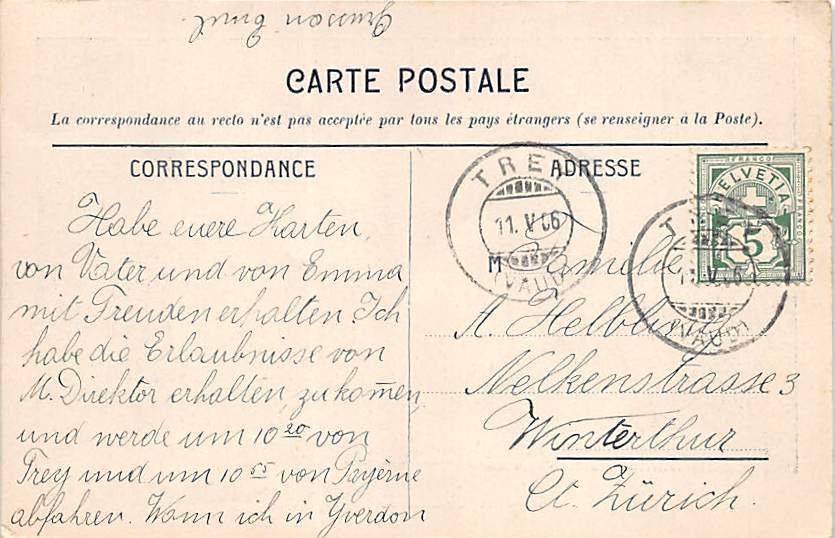 Emil
CARTE POSTALE
La correspondance au recto n'est pas acceptée par tous les pays étrangers (se renseigner à la Poste).
CORRESPONDANCE
Habe euere Karten,
von Vater und von Emma
mit Freuden erhalten. Ich
habe die Erlaubnisse von
M. Direktor erhalten, zu kom̅en,
und werde um 10 20 von
Trey und um 10 55 von Payerne
abfahren. Wann ich in Yverdon
ADRESSE
M
Familie
A. Helbling
Nelkenstrasse 3
Winterthur
Ct. Zürich.
TREY
11. V 06
(VAUD)
FRANCO
HELVETIA
FRANCO
5
TREY
11. V 06
(VAUD)